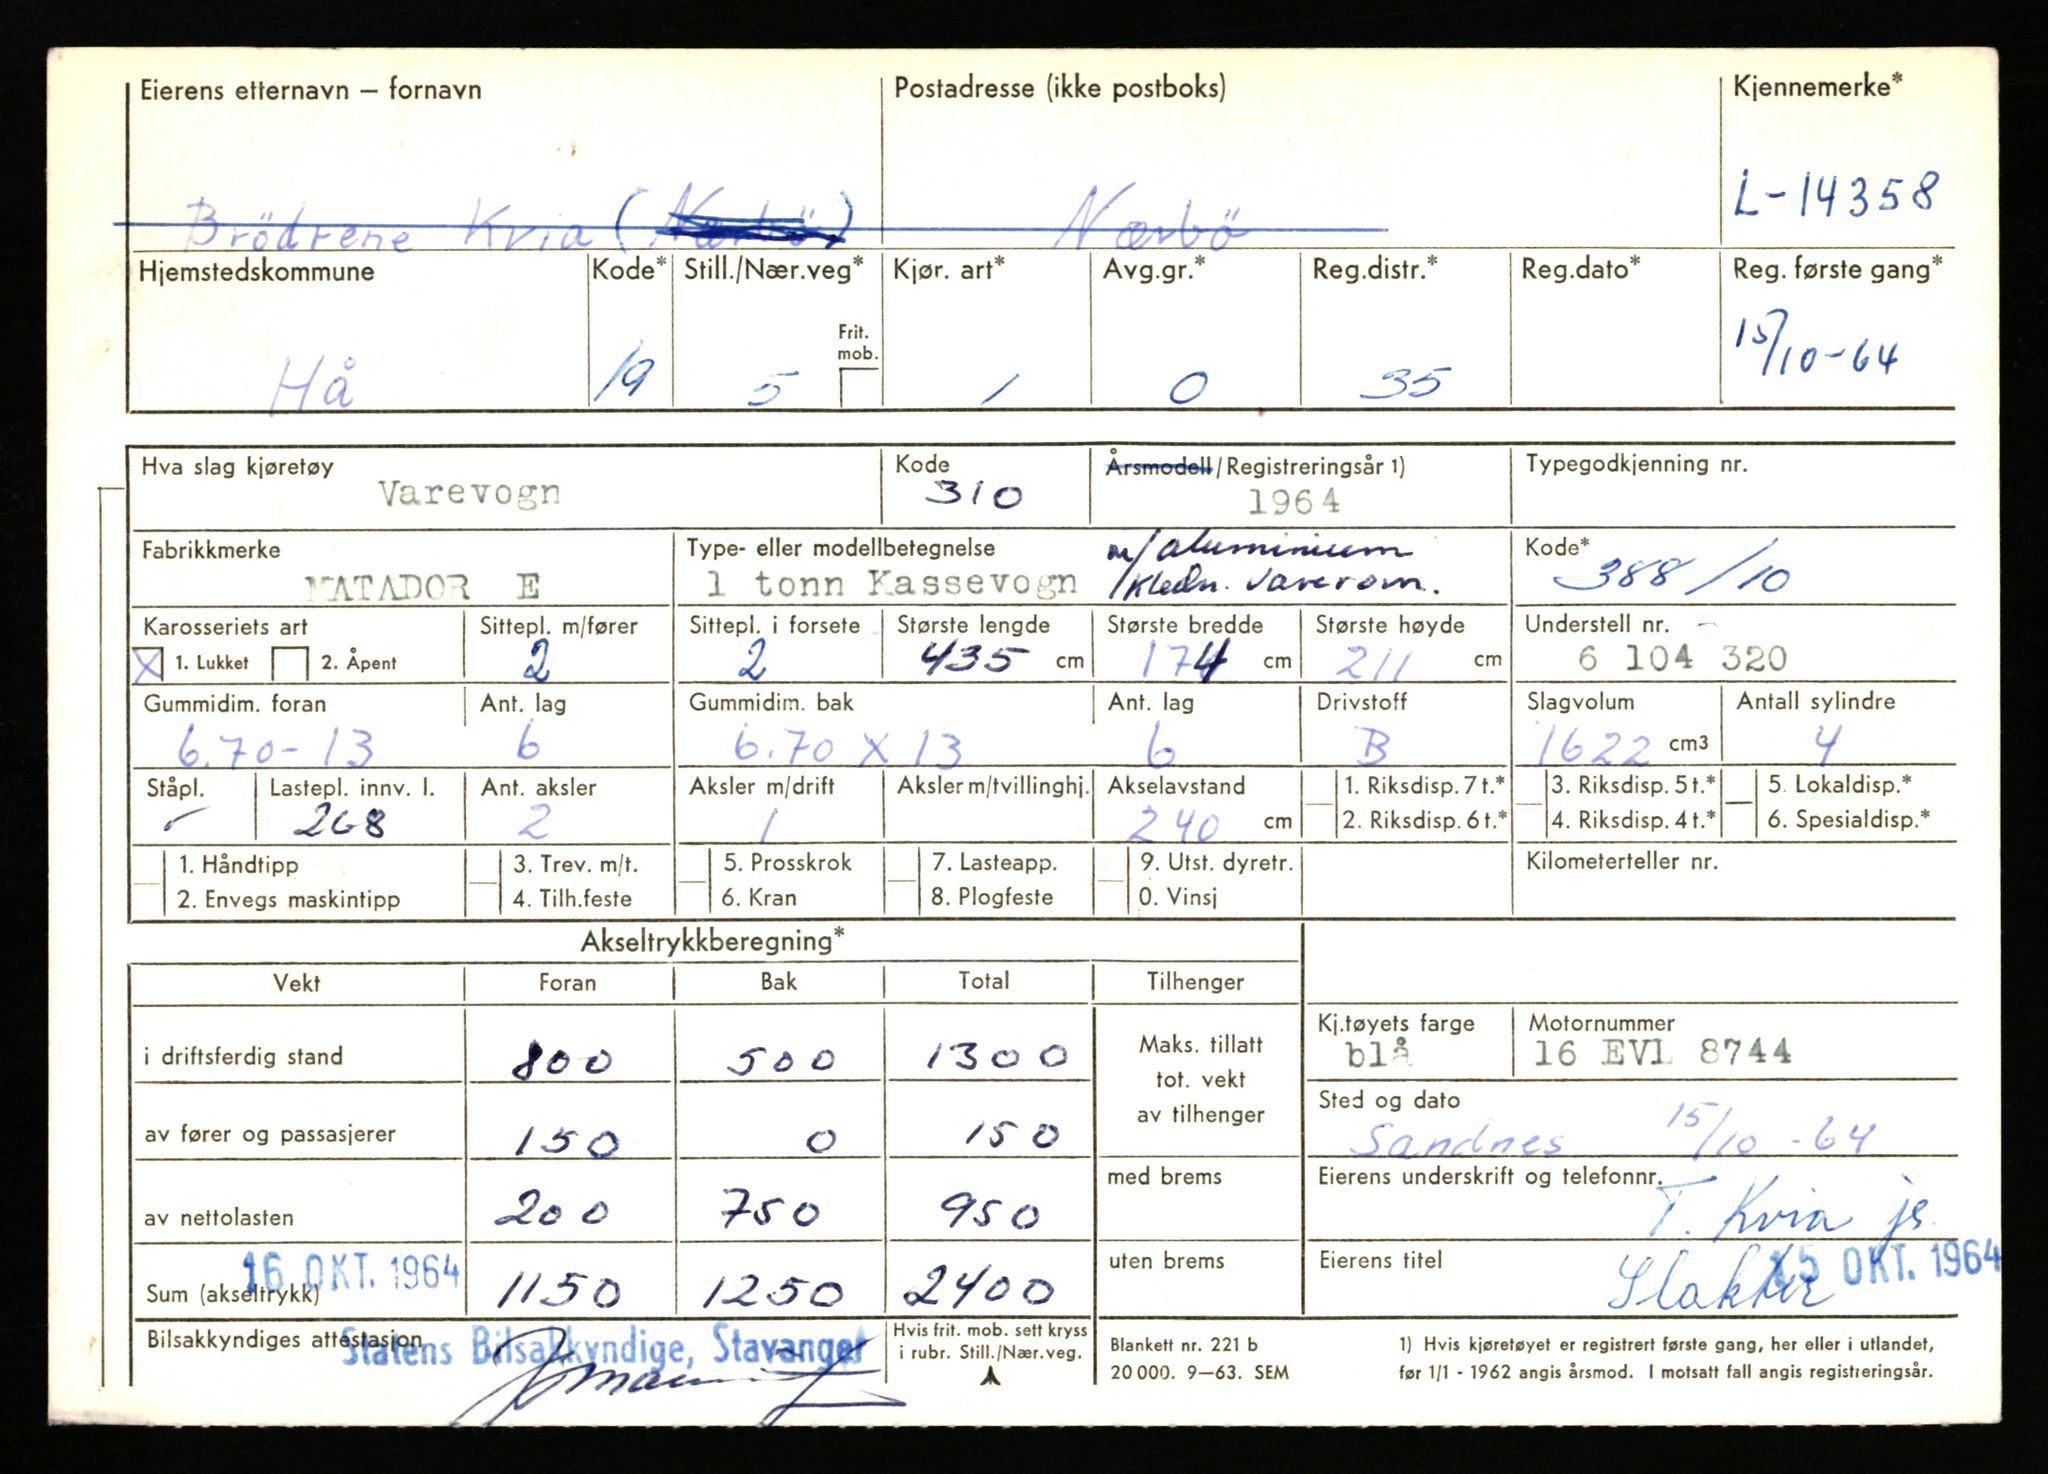 Eierens etternavn – fornavn
Postadresse (ikke postboks)
Kjennemerke*
Brödrene Kvia (Nærbö)
Nærbö
L-14358
Hjemstedskommune
Kode*
Still./Nær.veg*
Kjør. art*
Avg.gr.*
Reg.distr.*
Reg.dato*
Reg. første gang*
Frit. mob.
Hå
19
5
1
0
35
15/10-64
Hva slag kjøretøy
Kode
Årsmodell/Registreringsår 1)
Typegodkjenning nr.
Varevogn
310
1964
Fabrikkmerke
Type- eller modellbetegnelse
m/aluminium
Kode*
MATADOR E
1 tonn Kassevogn
/Kledn. varerom.
388/10
Karosseriets art
Sittepl. m/fører
Sittepl. i forsete
Største lengde
Største bredde
Største høyde
Understell nr.
X 1. Lukket
2. Åpent
2
2
435 cm
174 cm
211 cm
6 104 320
Gummidim. foran
Ant. lag
Gummidim. bak
Ant. lag
Drivstoff
Slagvolum
Antall sylindre
6.70-13
6
6.70 x 13
6
B
1622 cm3
4
Ståpl.
Lastepl. innv. l.
Ant. aksler
Aksler m/drift
Aksler m/tvillinghj.
Akselavstand
1. Riksdisp. 7 t.*
3. Riksdisp. 5 t.*
5. Lokaldisp.*
268
2
1
240 cm
2. Riksdisp. 6 t.*
4. Riksdisp. 4 t.*
6. Spesialdisp.*
1. Håndtipp
3. Trev. m/t.
5. Prosskrok
7. Lasteapp.
9. Utst. dyretr.
Kilometerteller nr.
2. Envegs maskintipp
4. Tilh.feste
6. Kran
8. Plogfeste
0. Vinsj
Akseltrykkberegning*
Vekt
Foran
Bak
Total
Tilhenger
i driftsferdig stand
800
500
1300
Maks. tillatt
tot. vekt
av tilhenger
Kj.tøyets farge
Motornummer
blå
16 EVL 8744
av fører og passasjerer
150
0
150
Sted og dato
Sandnes 15/10-64
av nettolasten
200
750
950
med brems
Eierens underskrift og telefonnr.
T. Kvia jr.
16 OKT. 1964
Sum (akseltrykk)
1150
1250
2400
uten brems
Eierens titel
Slakter
15 OKT. 1964
Bilsakkyndiges attestasjon
Statens Bilsakkyndige, Stavanger
Hvis frit. mob. sett kryss
i rubr. Still./Nær.veg.
Blankett nr. 221 b
20 000. 9–63. SEM
1) Hvis kjøretøyet er registrert første gang, her eller i utlandet,
før 1/1 - 1962 angis årsmod. I motsatt fall angis registreringsår.